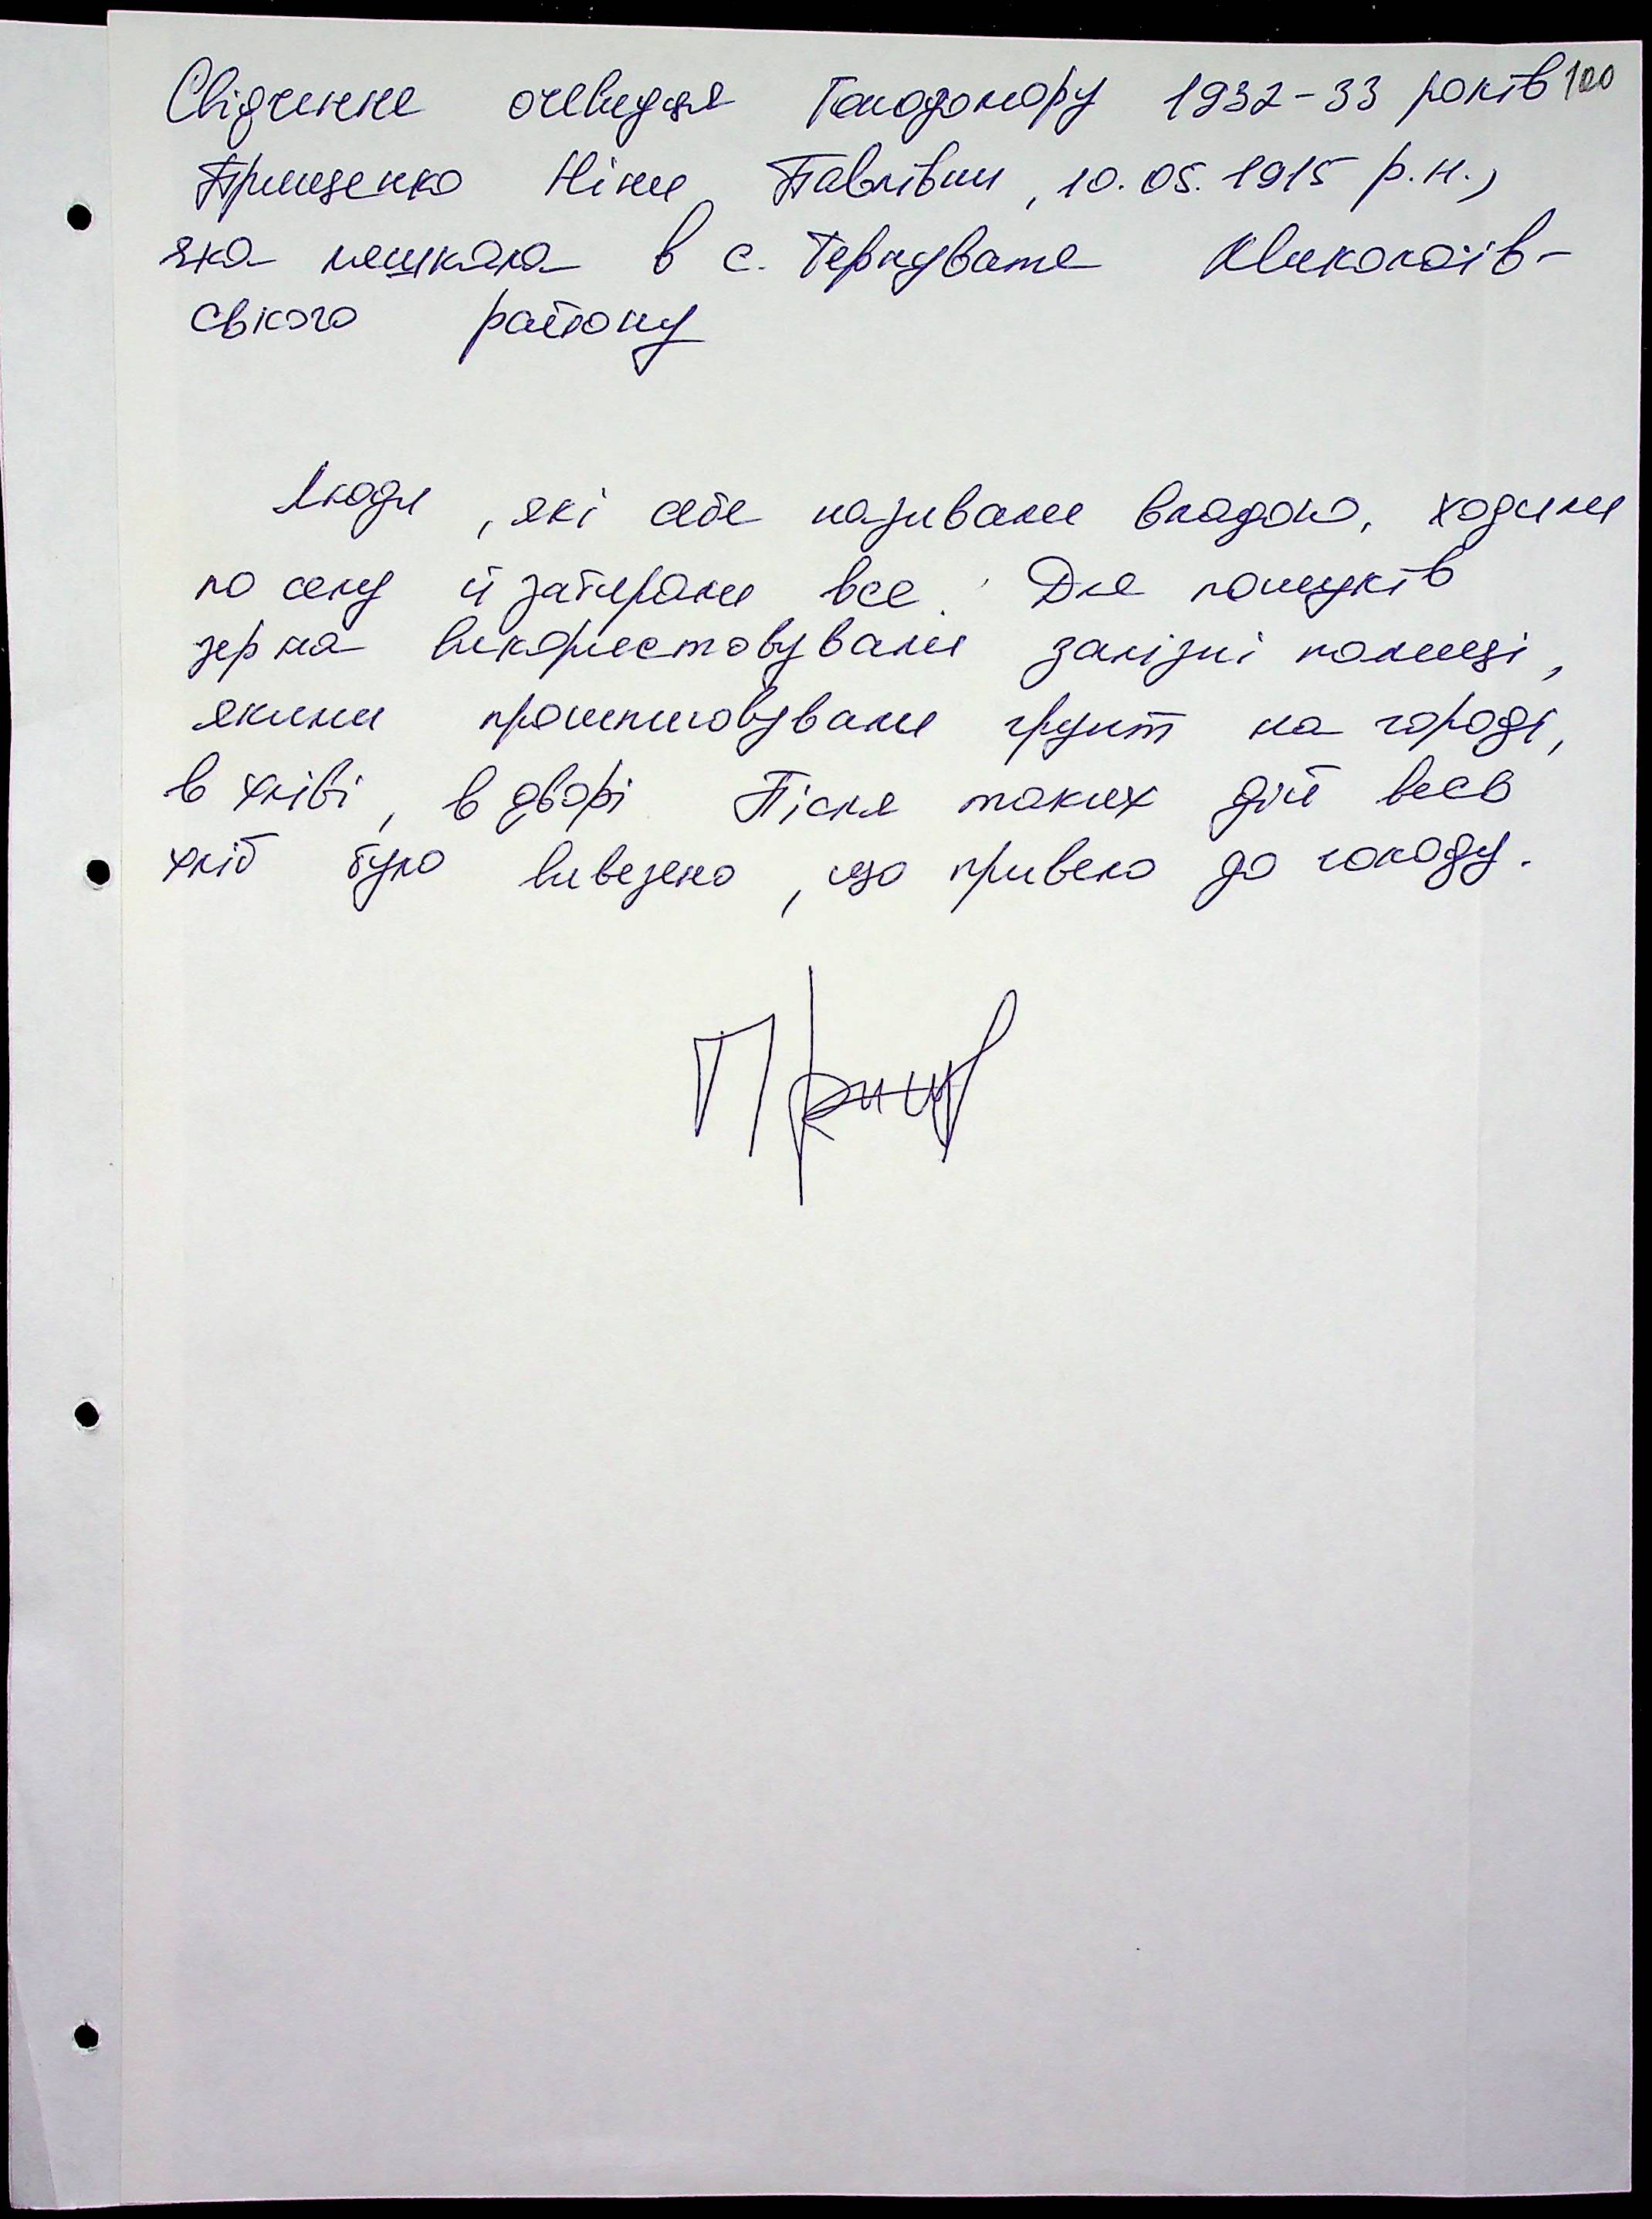 Свідчення очевидця Голодомору 1932-33 років 100
Прищепко Ніни Павлівни, 10.05.1915 р.н.,
яка мешкала в с. Тернувате Миколаїв-
ського району
Люди, які себе називали владою, ходили
по селу й забирали все. Для пошуків
зерна використовували залізні палиці,
якими проштиховували грунт на городі,
в хліві, в дворі Після таких дій весь
хліб було вивезено, що привело до голоду.
Прищ